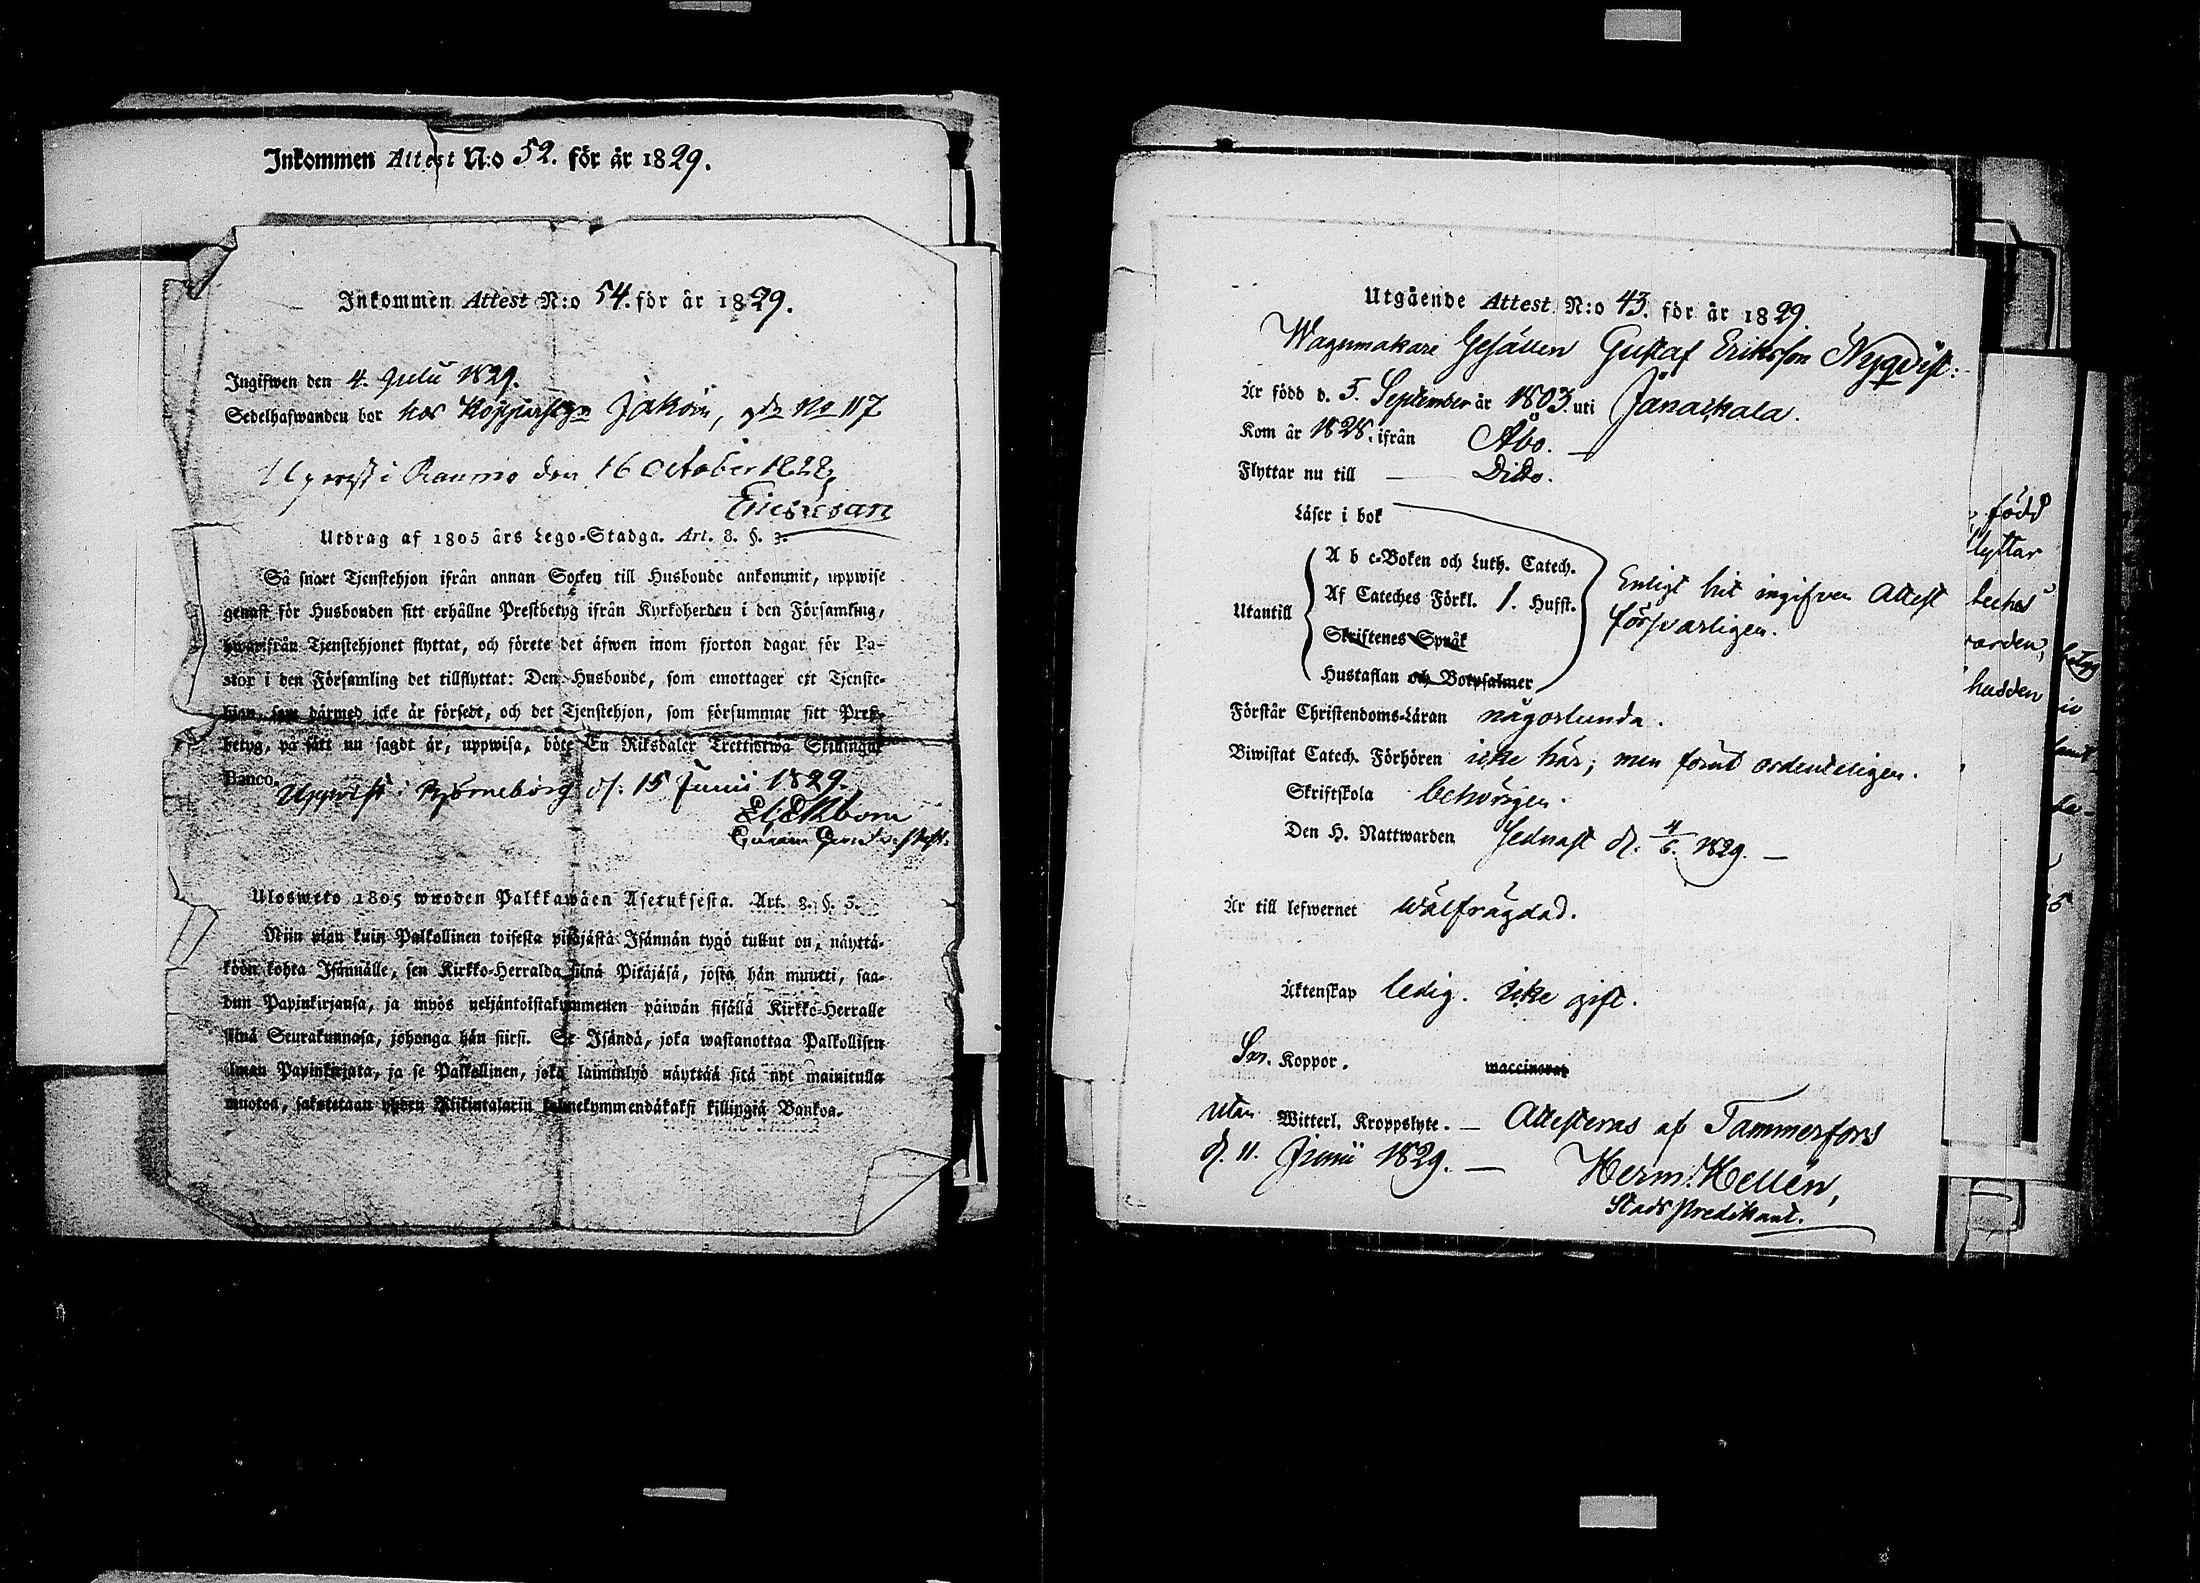 Inkommen Attest N:o 52. för år 1829.
Inkommen Attest N:o 54. för år 1829.
Ingifwen den 4. Julii 1829.
Sedelhafwanden bor hos Kopparslgn Jakoin, gdn No 117
Upvist i Raumo den 16 October 1828
Utdrag af 1805 års Lego-Stadga. Art. 8. §. 3.
Så snart Tjenstehjon ifrån annan Socken till Husbonde ankommit, uppwise
genast för Husbonden sitt erhållne Prestbetyg ifrån Kyrkoherden i den Församling,
hwarifrån Tjenstehjonet flyttat, och förete det äfwen inom fjorton dagar för Pa-
stor i den Församling det tillflyttat: Den Husbonde, som emottager ett Tjenste-
hjon, som därmed icke är försedt, och det Tjenstehjon, som försummar sitt Prest-
betyg, på sätt nu sagdt är, uppwisa, böte En Riksdaler Trettiotwå Skillingar
Banco.
Uppvist i Björneborg d. 15 Junii 1829.
Uloswето 1805 wuoden Palkkawäen Asetuksesta. Art. 8. §. 3.
Niin pian kuin Palkollinen toisesta pitäjästä Isännän tygö tullut on, näyttä-
köön kohta Isännälle, sen Kirkko-Herralda siinä Pitäjäsä, josta hän muutti, saa-
dun Papinkirjansa, ja myös neljäntoistakymmenen päiwän sisällä Kirkko-Herralle
siinä Seurakunnasa, johonga hän siirsi. Se Isändä, joka wastanottaa Palkollisen
ilman Papinkirjata, ja se Palkollinen, joka laiminlyö näyttää sitä nyt mainitulla
muotoa, sakotetaan yhden Riikintalarin kolmekymmendäkaksi killingiä Bankoa.
Utgående Attest N:o 43. för år 1829.
Wagnmakare Gesällen Gustaf Eriksson Nyqvist.
Är född d. 5. September år 1803. uti Janackala.
Kom år 1828. ifrån Åbo.
Flyttar nu till — Dito.
Läser i bok
A b c-Boken och Luth. Catech.
Utantill Af Cateches Förkl. 1. Hufst.
Skriftenes Språk
Hustaflan och Botpsalmer
Enligt hit ingifven Attest
försvarligen.
Förstår Christendoms-Läran någorlunda.
Biwistat Catech. Förhören icke här; men förut ordenteligen.
Skriftskola behörigen.
Den H. Nattwarden sednast d. 4/6. 1829. —
Är till lefwernet wälfrägdad.
Äktenskap ledig. icke gift.
Koppor. waccinerat
utan Witterl. Kroppslyte. — Attesteras af Tammerfors
d. 11. Junii 1829. —
Herm. Hellén,
Stads Predikant.
född
flyttar
hudden